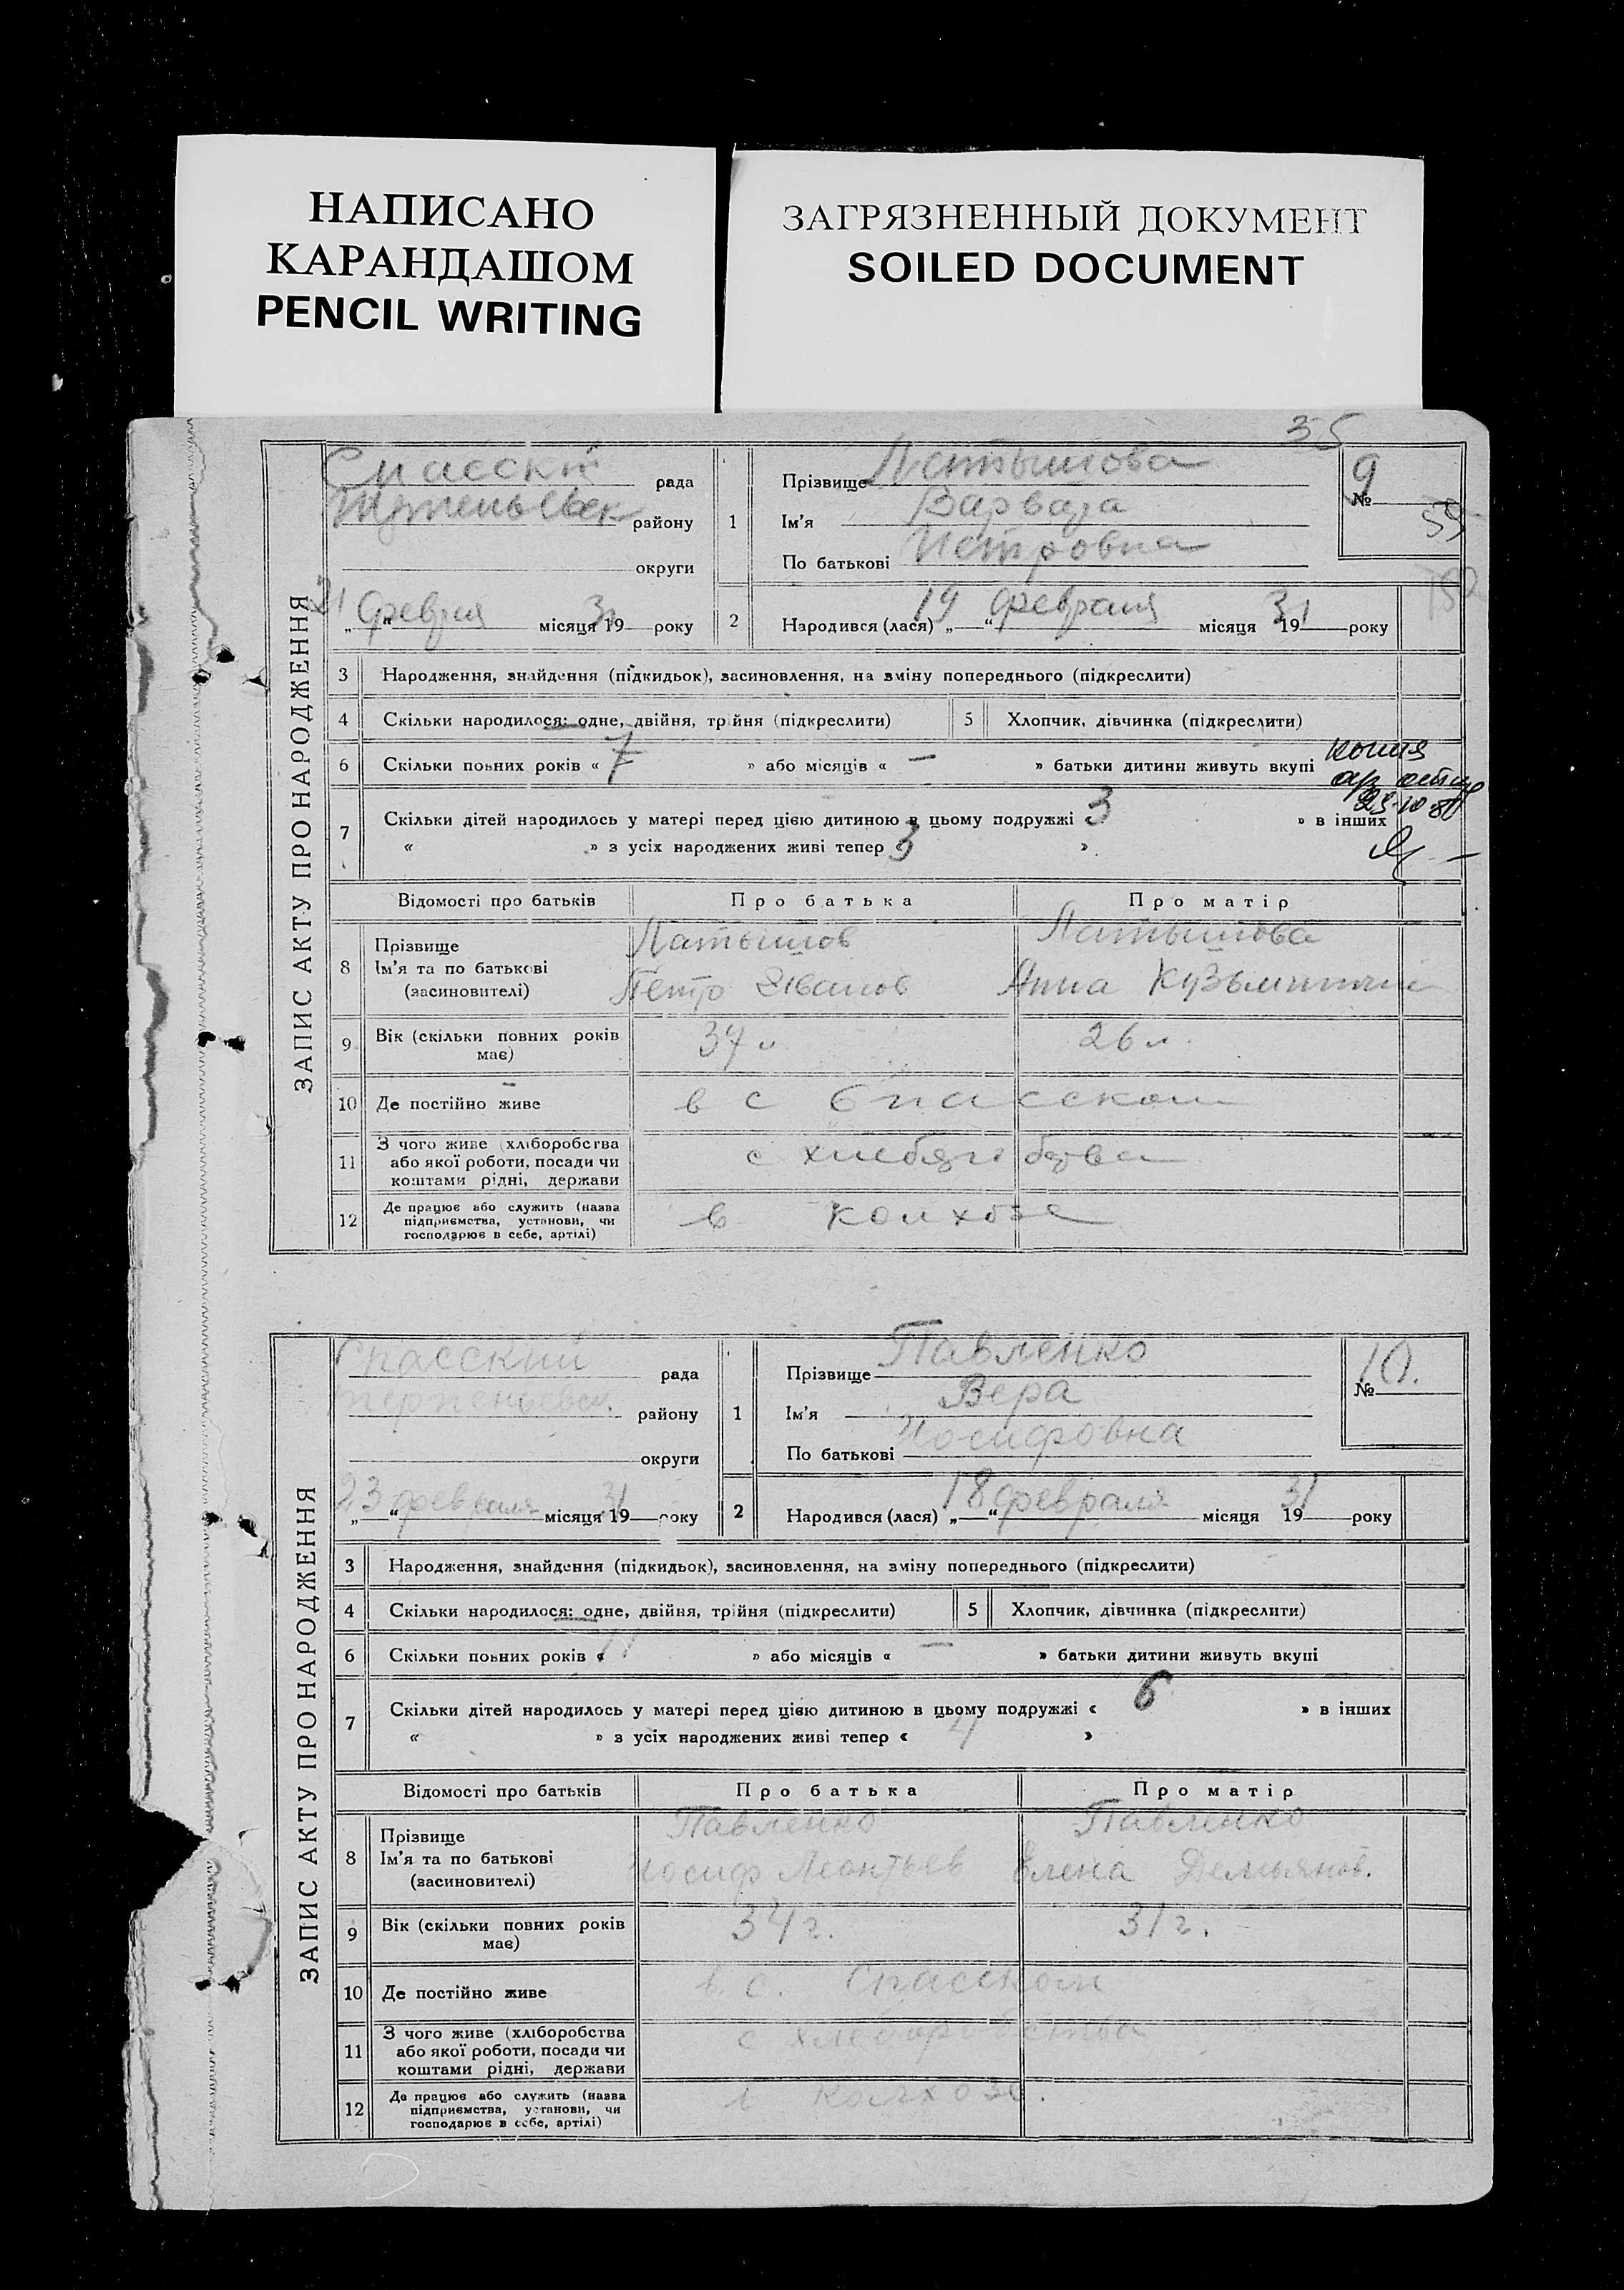 НАПИСАНО
КАРАНДАШОМ
PENCIL WRITING
ЗАГРЯЗНЕННЫЙ ДОКУМЕНТ
SOILED DOCUMENT
35
ЗАПИС АКТУ ПРО НАРОДЖЕННЯ
Спасскт рада
району
округи
21 „ “ місяця 1931 року
1 Прізвище Латышова
Ім’я Варвара
По батькові Петровна
№ 9
2 Народився (лася) „19“ февраля місяця 1931 року
3 Народження, знайдення (підкидьок), засиновлення, на зміну попереднього (підкреслити)
4 Скільки народилося: одне, двійня, трійня (підкреслити) 5 Хлопчик, дівчинка (підкреслити)
6 Скільки повних років « 7 » або місяців « — » батьки дитини живуть вкупі
копия
23-10-80
7 Скільки дітей народилось у матері перед цією дитиною в цьому подружжі 3 » в інших
« » з усіх народжених живі тепер « 3 »
Відомості про батьків Про батька Про матір
8 Прізвище Латышов Латышова
Ім’я та по батькові Петр Иванов Анна
(засиновителі)
9 Вік (скільки повних років має) 34 26 л
10 Де постійно живе в с Спасском
11 З чого живе (хліборобства
або якої роботи, посади чи
коштами рідні, держави
12 Де працює або служить (назва в колхозе
підприємства, установи, чи
господарює в себе, артілі)
ЗАПИС АКТУ ПРО НАРОДЖЕННЯ
Спасский рада
терпеньевск. району
округи
„23“ февраля місяця 1931 року
1 Прізвище Павленко
Ім’я Вера
По батькові Иосифовна
№ 10.
2 Народився (лася) „18“ февраля місяця 1931 року
3 Народження, знайдення (підкидьок), засиновлення, на зміну попереднього (підкреслити)
4 Скільки народилося: одне, двійня, трійня (підкреслити) 5 Хлопчик, дівчинка (підкреслити)
6 Скільки повних років « 11 » або місяців « — » батьки дитини живуть вкупі
7 Скільки дітей народилось у матері перед цією дитиною в цьому подружжі « 6 » в інших
« » з усіх народжених живі тепер « 4 »
Відомості про батьків Про батька Про матір
8 Прізвище Павленко Павленко
Ім’я та по батькові Иосиф Леонтьев Елена Демьянов.
(засиновителі)
9 Вік (скільки повних років має) 34 г. 31 г.
10 Де постійно живе в с. Спасском
11 З чого живе (хліборобства с хлеборобства
або якої роботи, посади чи
коштами рідні, держави
12 Де працює або служить (назва в колхозе.
підприємства, установи, чи
господарює в себе, артілі)